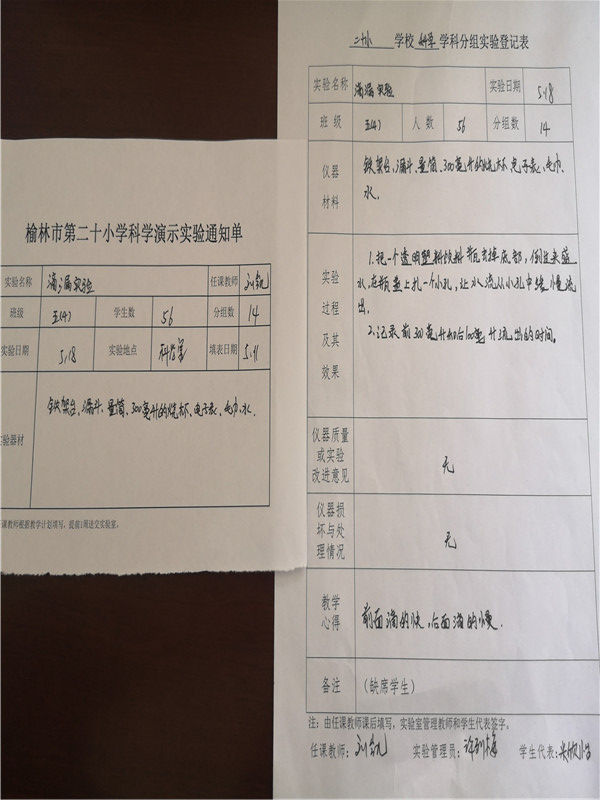 榆林市第二十小学科学演示实验通知单
实验名称 滴漏实验 任课教师 刘凯
班级 五(4) 学生数 56 分组数 14
实验日期 5.18 实验地点 科学室 填表日期 5.11
实验器材 铁架台、漏斗、量筒、300毫升的烧杯、电子表、毛巾、水.
任课教师根据教学计划填写，提前1周送交实验室。
二十小 学校 科学 学科分组实验登记表
实验名称 滴漏实验 实验日期 5.18
班 级 五(4) 人 数 56 分组数 14
仪器
材料
铁架台、漏斗、量筒、300毫升的烧杯、电子表、毛巾、
水。
实验
过程
及其
效果
1.把一个透明塑料饮料瓶去掉底部，倒过来盛
水，在瓶盖上扎一个小孔，让水流从小孔中缓慢流
出。
2.记录前300毫升和后100毫升流出的时间。
仪器质量
或实验
改进意见
无
仪器损
坏与处
理情况
无
教学
心得
前面滴的快，后面滴的慢.
备注 (缺席学生)
注：由任课教师课后填写，实验室管理教师和学生代表签字。
任课教师：刘凯 实验管理员： 学生代表：